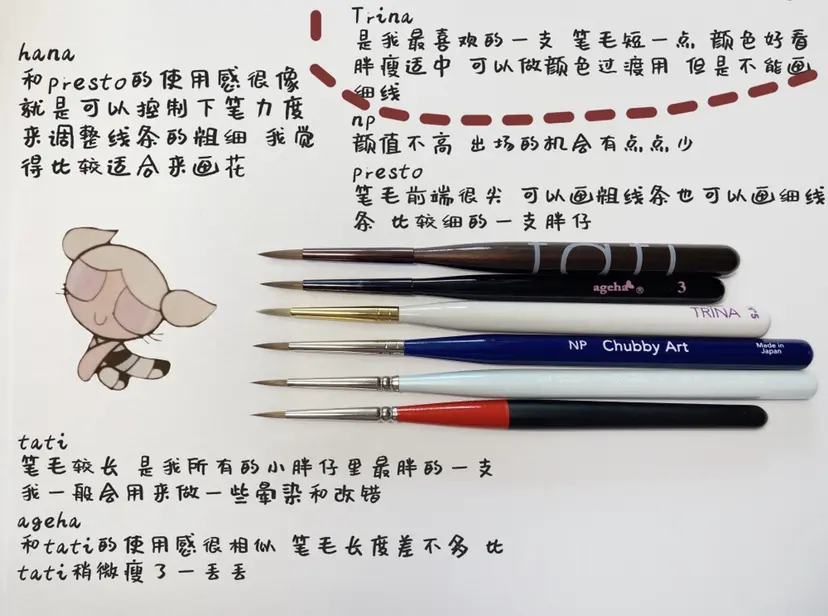 hana
和presto的使用感很像
就是可以控制下笔力度
来调整线条的粗细 我觉
得比较适合来画花
Trina
是我最喜欢的一支 笔毛短一点 颜色好看
胖瘦适中 可以做颜色过渡用 但是不能画
细线
np
颜值不高 出场的机会有点点少
presto
笔毛前端很尖 可以画粗线条也可以画细线
条 比较细的一支胖仔
tati
ageha® 3
TRINA n°5
NP Chubby Art Made in
Japan
tati
笔毛较长 是我所有的小胖仔里最胖的一支
我一般会用来做一些晕染和改错
ageha
和tati的使用感很相似 笔毛长度差不多 比
tati稍微瘦了一丢丢